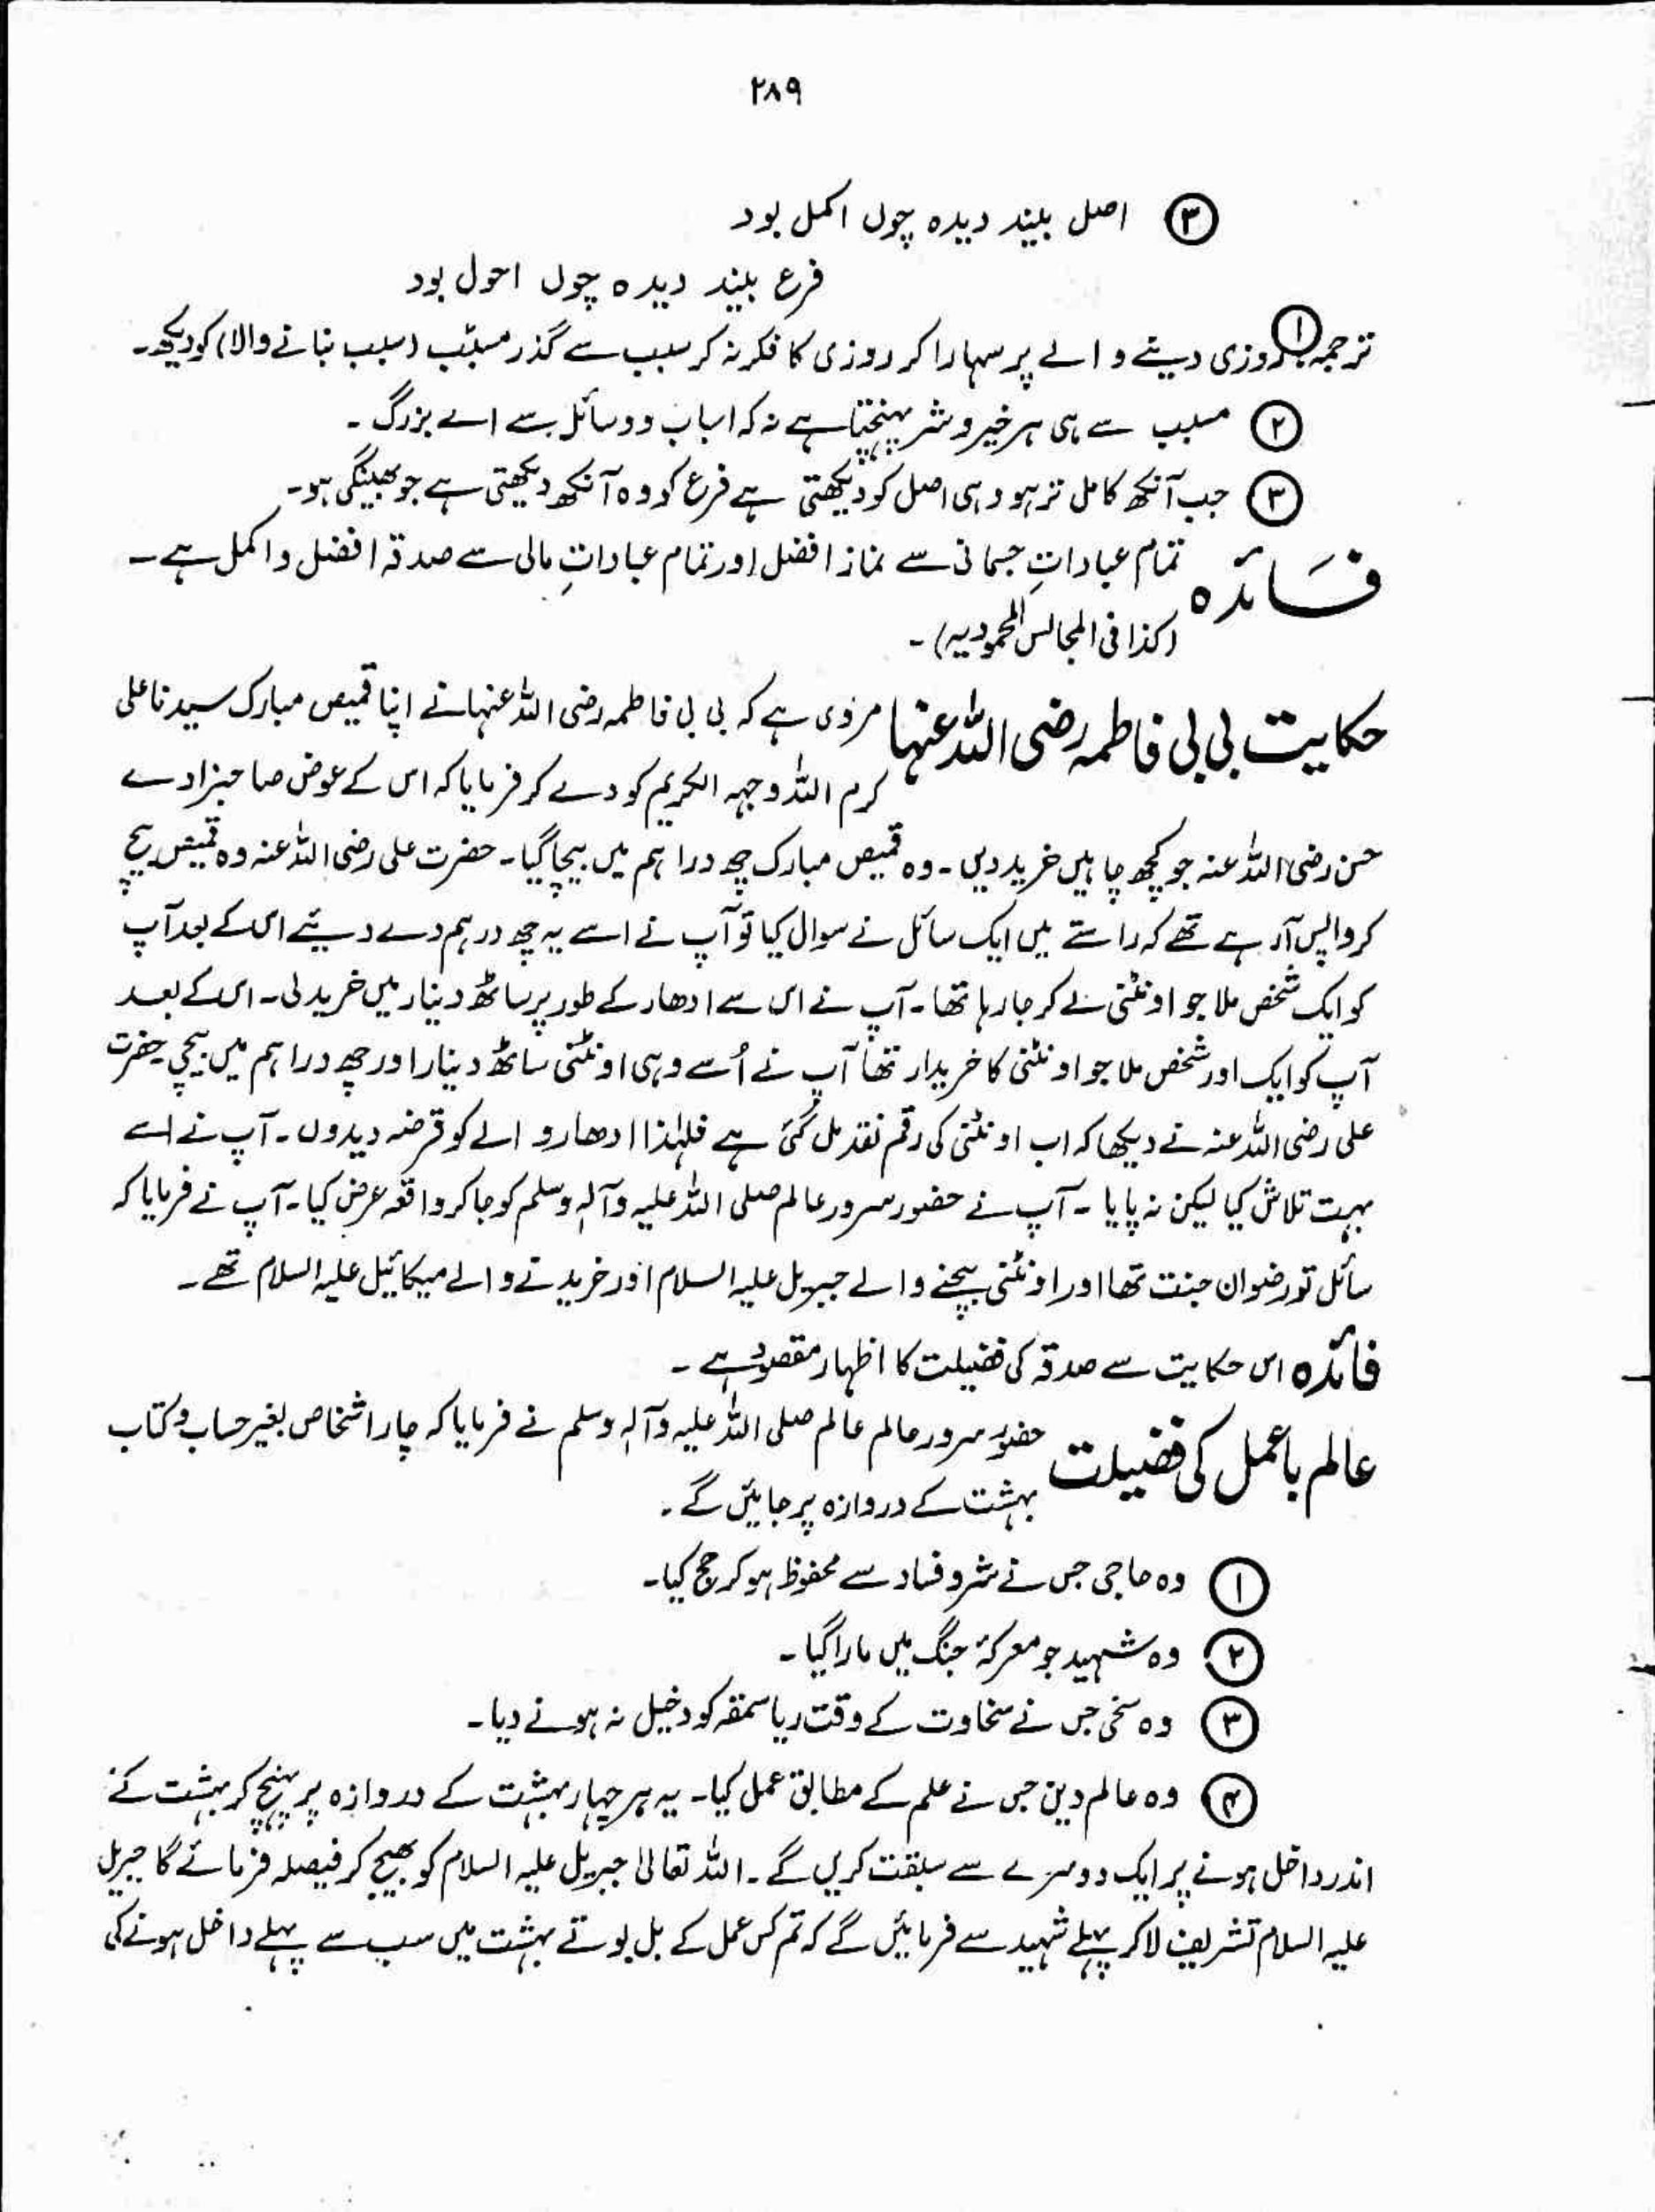 ۲۸۹
③ اصل بیند دیدہ چوں اکمل بود
فرع بیند دیدہ چوں احول بود
ترجمہ ① روزی دینے والے پر سہارا کر روزی کا فکر نہ کر سبب سے گذر مسبّب (سبب بنانے والا) کو دیکھ۔
② مسبب سے ہی ہر خیر و شر پہنچتا ہے نہ کہ اسباب و وسائل سے اے بزرگ ۔
③ جب آنکھ کامل تر ہو وہی اصل کو دیکھتی ہے فرع کو وہ آنکھ دیکھتی ہے جو بھینگی ہو۔
فَائدہ تمام عباداتِ جسمانی سے نماز افضل اور تمام عباداتِ مالی سے صدقہ افضل و اکمل ہے ۔
(کذا فی المجالس المحمودیہ) ۔
حکایت بی بی فاطمہ رضی اللہ عنہا مروی ہے کہ بی بی فاطمہ رضی اللہ عنہا نے اپنا قمیص مبارک سیدنا علی
کرم اللہ وجہہ الکریم کو دے کر فرمایا کہ اس کے عوض صاحبزادے
حسن رضی اللہ عنہ جو کچھ چاہیں خرید دیں ۔ وہ قمیص مبارک چھ دراہم میں بیچا گیا ۔ حضرت علی رضی اللہ عنہ وہ قمیص بیچ
کر واپس آرہے تھے کہ راستے میں ایک سائل نے سوال کیا تو آپ نے اسے یہ چھ درہم دے دیئے اس کے بعد آپ
کو ایک شخص ملا جو اونٹنی لے کر جا رہا تھا ۔ آپ نے اس سے ادھار کے طور پر ساٹھ دینار میں خرید لی ۔ اس کے بعد
آپ کو ایک اور شخص ملا جو اونٹنی کا خریدار تھا آپ نے اُسے وہی اونٹنی ساٹھ دینار اور چھ دراہم میں بیچی حضرت
علی رضی اللہ عنہ نے دیکھا کہ اب اونٹنی کی رقم نقد مل گئی ہے فلہٰذا ادھار والے کو قرضہ دیدوں ۔ آپ نے اسے
بہت تلاش کیا لیکن نہ پایا ۔ آپ نے حضور سرور عالم صلی اللہ علیہ وآلہ وسلم کو جا کر واقعہ عرض کیا ۔ آپ نے فرمایا کہ
سائل تو رضوان جنت تھا اور اونٹنی بیچنے والے جبریل علیہ السلام اور خریدنے والے میکائیل علیہ السلام تھے ۔
فائدہ اس حکایت سے صدقہ کی فضیلت کا اظہار مقصود ہے ۔
عالم باعمل کی فضیلت حضور سرور عالم عالم صلی اللہ علیہ وآلہ وسلم نے فرمایا کہ چار اشخاص بغیر حساب و کتاب
بہشت کے دروازہ پر جائیں گے ۔
① وہ حاجی جس نے شر و فساد سے محفوظ ہو کر حج کیا ۔
② وہ شہید جو معرکۂ جنگ میں مارا گیا ۔
③ وہ سخی جس نے سخاوت کے وقت ریا سمعہ کو دخیل نہ ہونے دیا ۔
④ وہ عالم دین جس نے علم کے مطابق عمل کیا ۔ یہ ہر چہار بہشت کے دروازہ پر پہنچ کر بہشت کے
اندر داخل ہونے پر ایک دوسرے سے سبقت کریں گے ۔ اللہ تعالیٰ جبریل علیہ السلام کو بھیج کر فیصلہ فرمائے گا جبریل
علیہ السلام تشریف لا کر پہلے شہید سے فرمائیں گے کہ تم کس عمل کے بل بوتے بہشت میں سب سے پہلے داخل ہونے کی